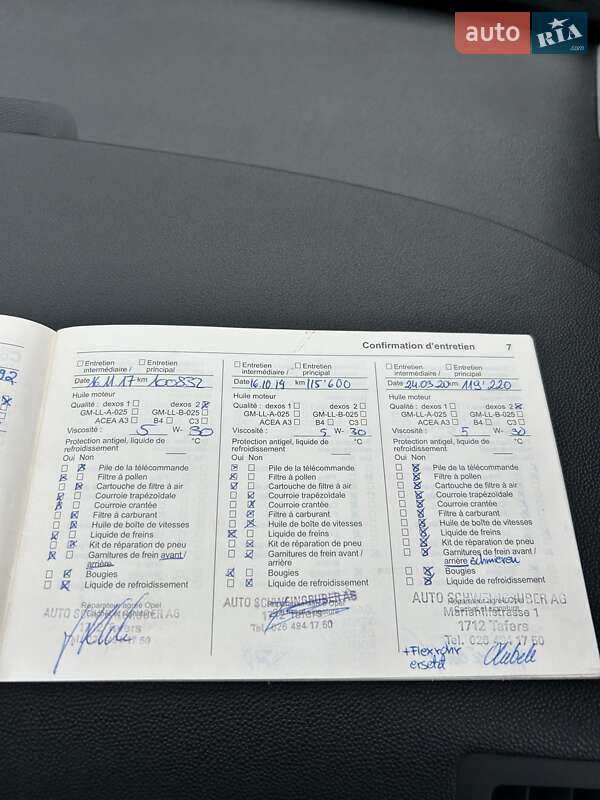 auto RIA.com
Confirmation d'entretien 7
92
Entretien intermédiaire / Entretien principal
Date 16.11.17 km 100832
Huile moteur
Qualité : dexos 1 dexos 2 x
GM-LL-A-025 GM-LL-B-025
ACEA A3 B4 C3
Viscosité : 5 W- 30
Protection antigel, liquide de refroidissement °C
Oui Non
Pile de la télécommande
Filtre à pollen
Cartouche de filtre à air
Courroie trapézoïdale
Courroie crantée
Filtre à carburant
Huile de boîte de vitesses
Liquide de freins
Kit de réparation de pneu
Garnitures de frein avant /
arrière
Bougies
Liquide de refroidissement
Réparateur agréé Opel
AUTO SCHWEINGRUBER AG
Tel. 026 494 17 50
Entretien intermédiaire / Entretien principal
Date 16.10.19 km 115'600
Huile moteur
Qualité : dexos 1 dexos 2
GM-LL-A-025 GM-LL-B-025
ACEA A3 B4 C3
Viscosité : 5 W- 30
Protection antigel, liquide de refroidissement °C
Oui Non
Pile de la télécommande
Filtre à pollen
Cartouche de filtre à air
Courroie trapézoïdale
Courroie crantée
Filtre à carburant
Huile de boîte de vitesses
Liquide de freins
Kit de réparation de pneu
Garnitures de frein avant /
arrière
Bougies
Liquide de refroidissement
AUTO SCHWEINGRUBER AG
Tafers
Tel. 026 494 17 50
Entretien intermédiaire / Entretien principal
Date 24.03.20 km 119'220
Huile moteur
Qualité : dexos 1 dexos 2 x
GM-LL-A-025 GM-LL-B-025
ACEA A3 B4 C3
Viscosité : 5 W- 30
Protection antigel, liquide de refroidissement °C
Oui Non
Pile de la télécommande
Filtre à pollen
Cartouche de filtre à air
Courroie trapézoïdale
Courroie crantée
Filtre à carburant
Huile de boîte de vitesses
Liquide de freins
Kit de réparation de pneu
Garnitures de frein avant /
arrière schmieren
Bougies
Liquide de refroidissement
Réparateur agréé Opel
AUTO SCHWEINGRUBER AG
Mariahilfstrasse 1
1712 Tafers
Tel. 026 494 17 50
+Flexrohr
ersetzt